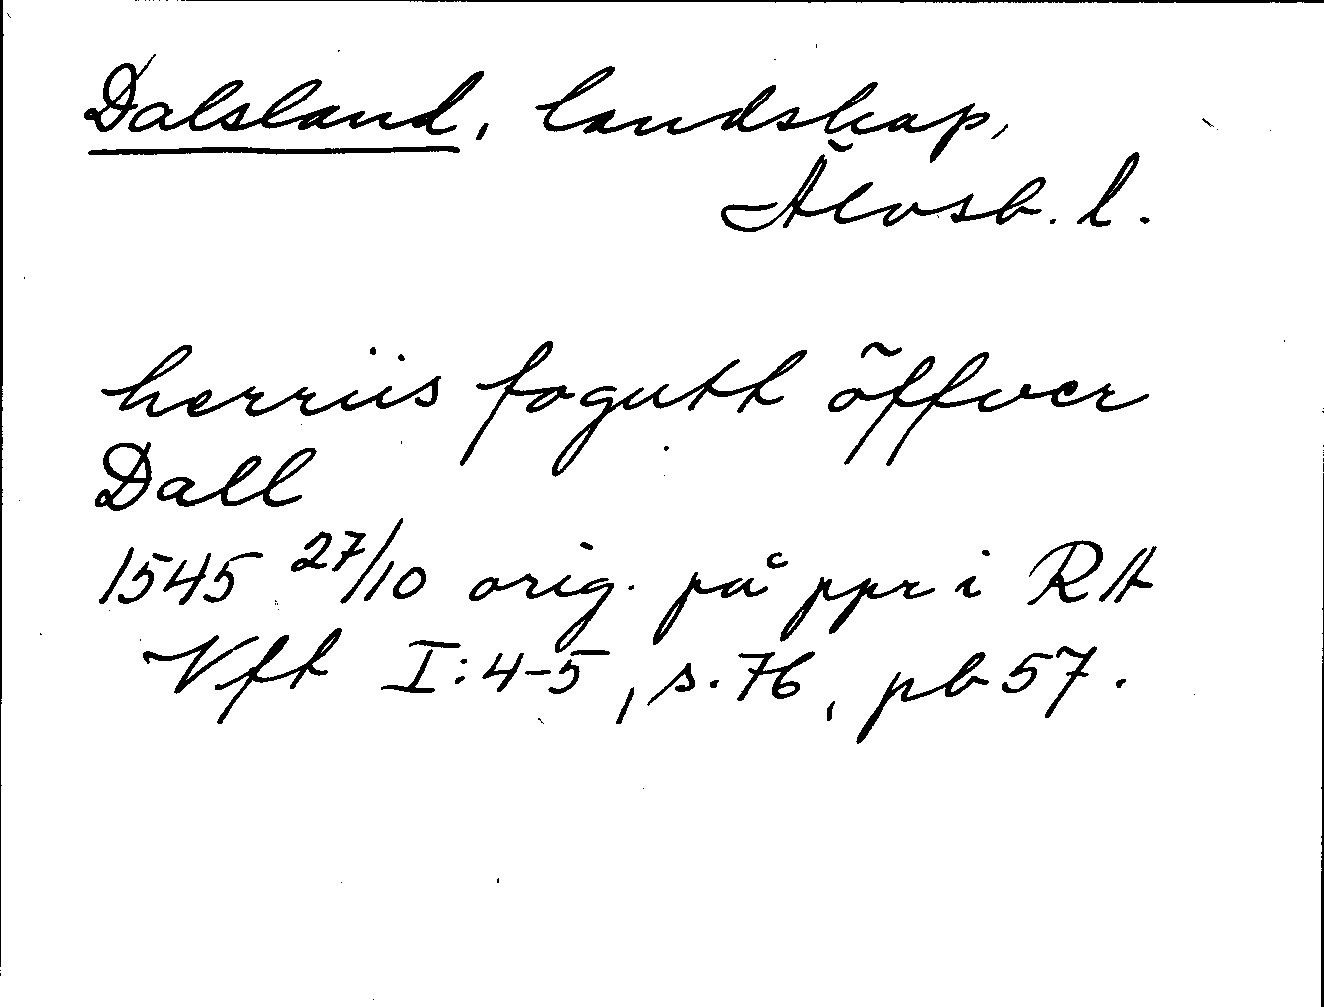 Dalsland, landskap,
Älvsb. l.
herriis fogutt öffver
Dall
1545 27/10 orig. på ppr i RA
Vft I:4-5, s. 76, pb 57.